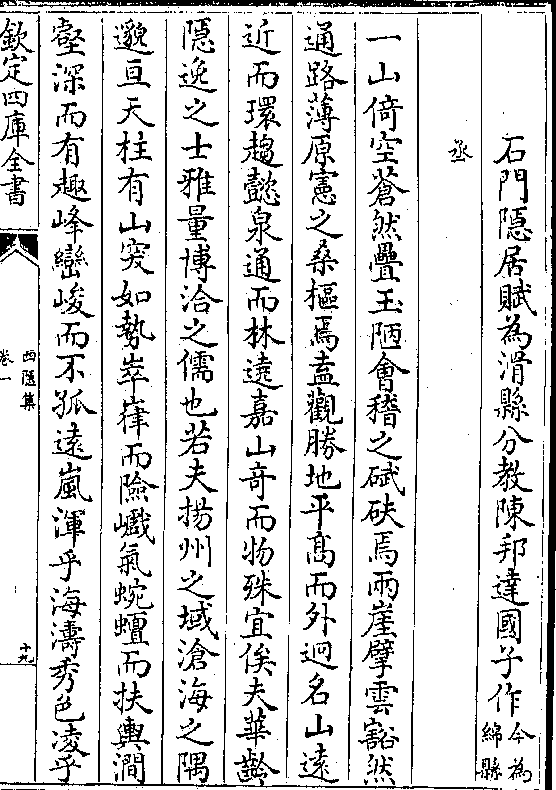 石門隱居賦為滑縣分教陳邦達國子作今為綿縣
丞
一山倚空蒼然疊玉陋會稽之碔砆焉兩崖擘雲豁然
通路薄原憲之桑樞焉盍觀勝地平髙而外迥名山遠
近而環趨懿泉通而林遶嘉山竒而物殊宜俟夫華齡
隱逸之士雅量博洽之儒也若夫揚州之域滄海之隅
邈亘天柱有山突如勢崒嵂而險巇氣蜿蟺而扶輿澗
壑深而有趣峰巒峻而不孤遠嵐渾乎海濤秀色凌乎
欽定四庫全書
西隱集
卷一
十九